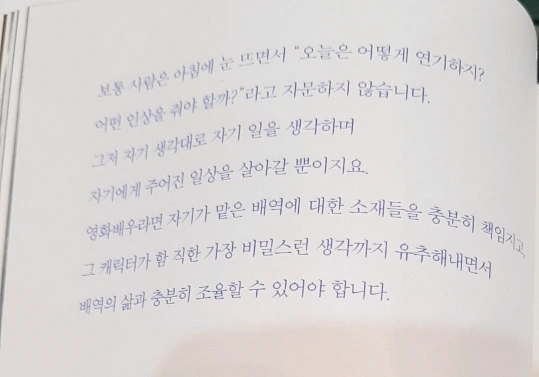 보통 사람은 아침에 눈 뜨면서 “오늘은 어떻게 연기하지?
어떤 인상을 줘야 할까?”라고 자문하지 않습니다.
그저 자기 생각대로 자기 일을 생각하며
자기에게 주어진 일상을 살아갈 뿐이지요.
영화배우라면 자기가 맡은 배역에 대한 소재들을 충분히 책임지고,
그 캐릭터가 함 직한 가장 비밀스런 생각까지 유추해내면서
배역의 삶과 충분히 조율할 수 있어야 합니다.